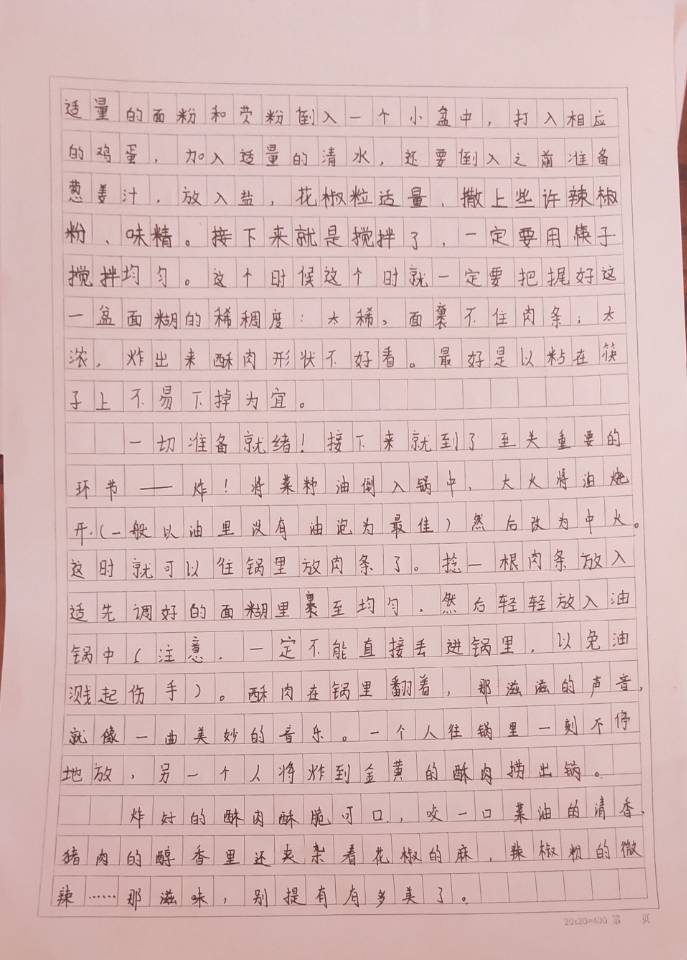 适量的面粉和芡粉倒入一个小盆中，打入相应
的鸡蛋，加入适量的清水，还要倒入之前准备
葱姜汁，放入盐，花椒粒适量，撒上些许辣椒
粉、味精。接下来就是搅拌了，一定要用筷子
搅拌均匀。这个时候这个时就一定要把握好这
一盆面糊的稀稠度：太稀，面裹不住肉条；太
浓，炸出来酥肉形状不好看。最好是以粘在筷
子上不易下掉为宜。
一切准备就绪！接下来就到了至关重要的
环节——炸！将菜籽油倒入锅中，大火将油烧
开.(一般以油里以有油泡为最佳)然后改为中火。
这时就可以往锅里放肉条了。捻一根肉条放入
适先调好的面糊里裹至均匀，然后轻轻放入油
锅中(注意，一定不能直接丢进锅里，以免油
溅起伤手)。酥肉在锅里翻着，那滋滋的声音，
就像一曲美妙的音乐。一个人往锅里一刻不停
地放，另一个人将炸到金黄的酥肉捞出锅。
炸好的酥肉酥脆可口，咬一口菜油的清香，
猪肉的醇香里还夹杂着花椒的麻，辣椒粉的微
辣……那滋味，别提有有多美了。
20x20=400 第 页